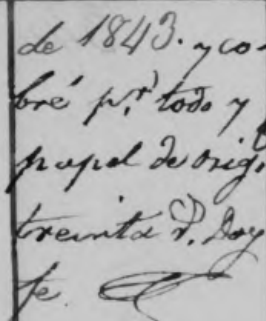 de 1843. y co-
bré p.r todo y
papel de orig.
treinta r.s Doy
fe.